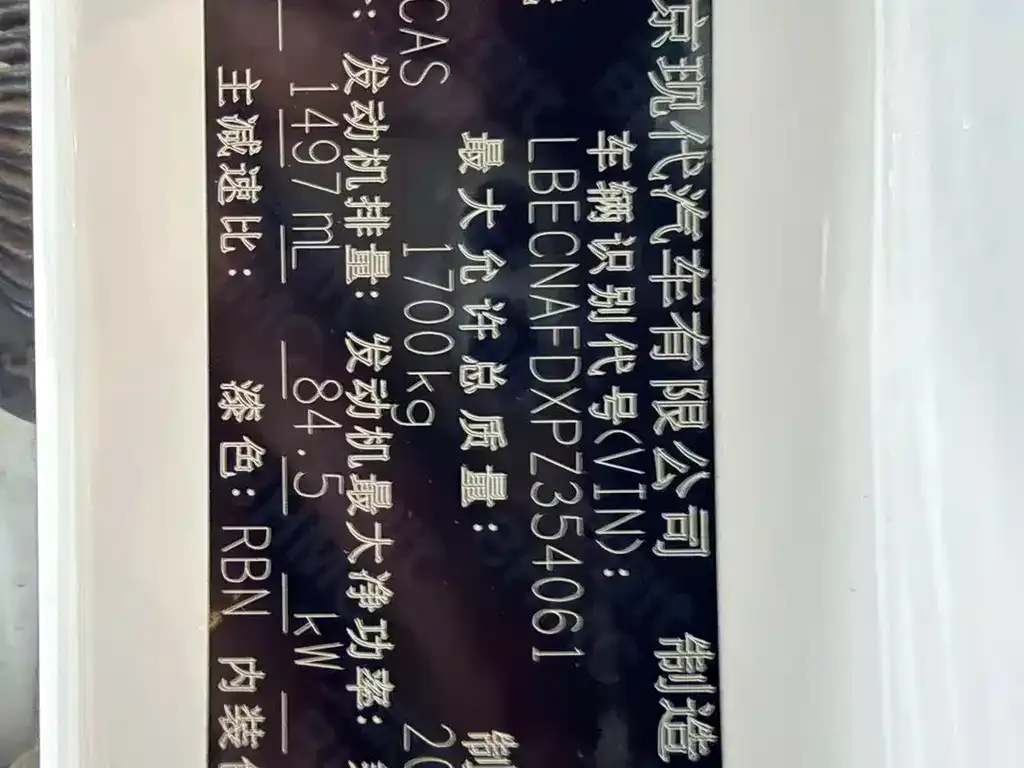 京现代汽车有限公司 制造
车辆识别代号(VIN):
LBECNAFDXPZ354061
最大允许总质量: 制
CAS 1700kg 20
发动机排量: 发动机最大净功率:
1497mL 84.5 kW
主减速比: 漆色: RBN 内装